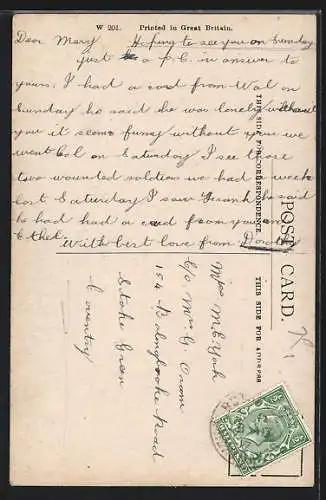 W 201. Printed in Great Britain.
Dear Mary Hoping to see you on Sunday
just a P.C. in answer to
yours. I had a card from Wal on
Sunday he said he was lonely without
you it seems funny without you we
went Col on Saturday I see those
two wounded soldiers we had a week
last Saturday I saw Frank he said
he had had a card from you and
Ethel. With best love from
THIS SIDE FOR CORRESPONDENCE
POST CARD.
THIS SIDE FOR ADDRESS
Miss M. E. York
C/o Mrs G. Oram
154 Bolingbroke Road
Stoke Green
Coventry